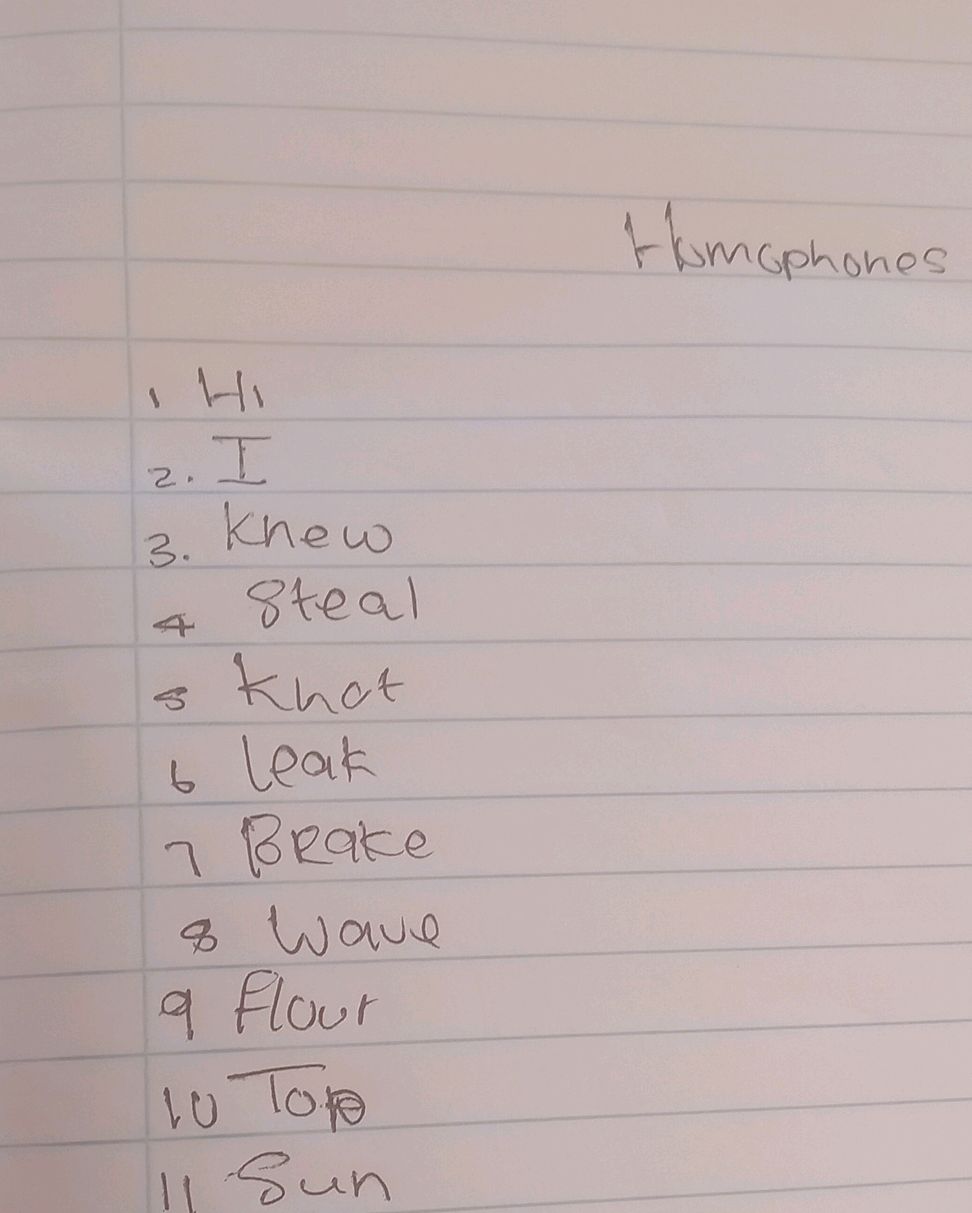 Homophones
1 Hi
2. I
3. Knew
4 Steal
5 Knot
6 leak
7 Brake
8 Wave
9 flour
10
11 Sun